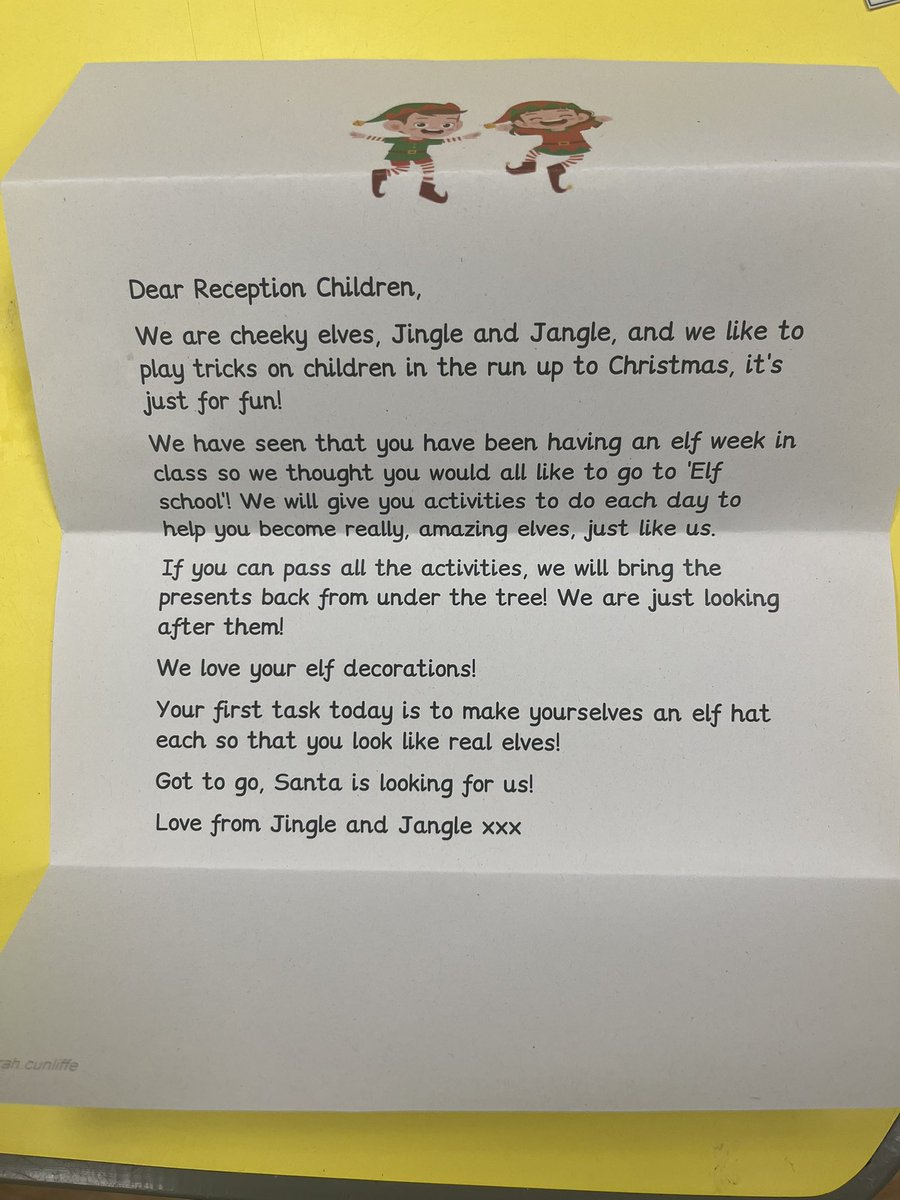 Dear Reception Children,
We are cheeky elves, Jingle and Jangle, and we like to
play tricks on children in the run up to Christmas, it's
just for fun!
We have seen that you have been having an elf week in
class so we thought you would all like to go to 'Elf
school'! We will give you activities to do each day to
help you become really, amazing elves, just like us.
If you can pass all the activities, we will bring the
presents back from under the tree! We are just looking
after them!
We love your elf decorations!
Your first task today is to make yourselves an elf hat
each so that you look like real elves!
Got to go, Santa is looking for us!
Love from Jingle and Jangle xxx
rah.cunliffe